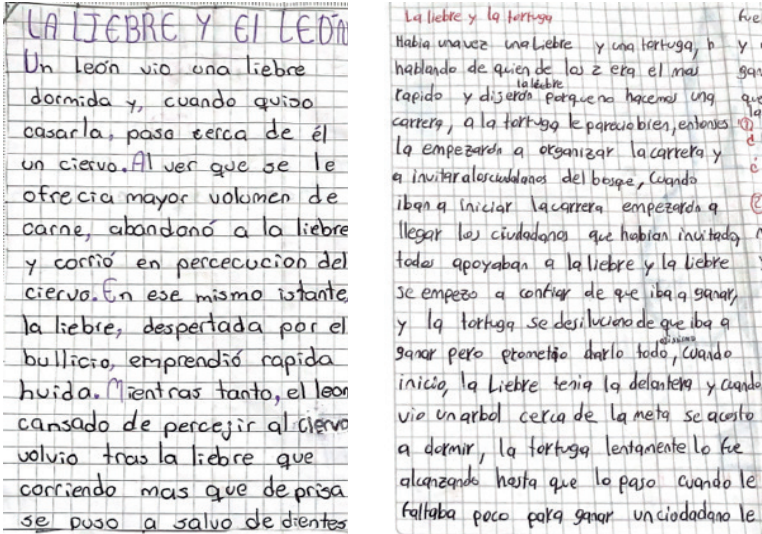 LA LIEBRE Y El LEÓN
Un león vio una liebre
dormida y, cuando quiso
casarla, paso serca de él
un ciervo. Al ver que se le
ofrecia mayor volumen de
carne, abandonó a la liebre
y corrió en percecucion del
ciervo. En ese mismo istante,
la liebre, despertada por el
bullicio, emprendió rapida
huida. Mientras tanto, el leon
cansado de percejir al ciervo
volvio tras la liebre que
corriendo mas que de prisa
se puso a salvo de dientes
La liebre y la tortuga
Habia una vez una Liebre y una tortuga,
hablando de quien de las 2 era el mas
la liebre
rapido y dijeron porque no hacemos una
carrera, a la tortuga le parecio bien, entonses
la empezaron a organizar la carrera y
a invitar a los ciudadanos del bosque, Cuando
iban a iniciar la carrera empezaron a
llegar los ciudadanos que habian invitado
todos apoyaban a la liebre y la liebre
se empezo a confiar de que iba a ganar,
y la tortuga se desiluciono de que iba a
ganar pero prometio darlo todo, cuando
inicio, la Liebre tenia la delantera y cuando
vio un arbol cerca de la meta se acosto
a dormir, la tortuga lentamente lo fue
alcanzando hasta que lo paso cuando le
faltaba poco para ganar un ciodadano le
fue
y
gan
que
la
①
②